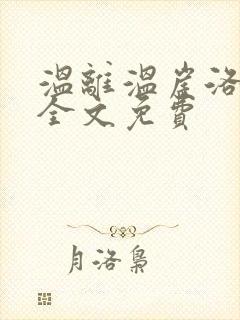 溫離溫崖洛
全文免費
月洛梟